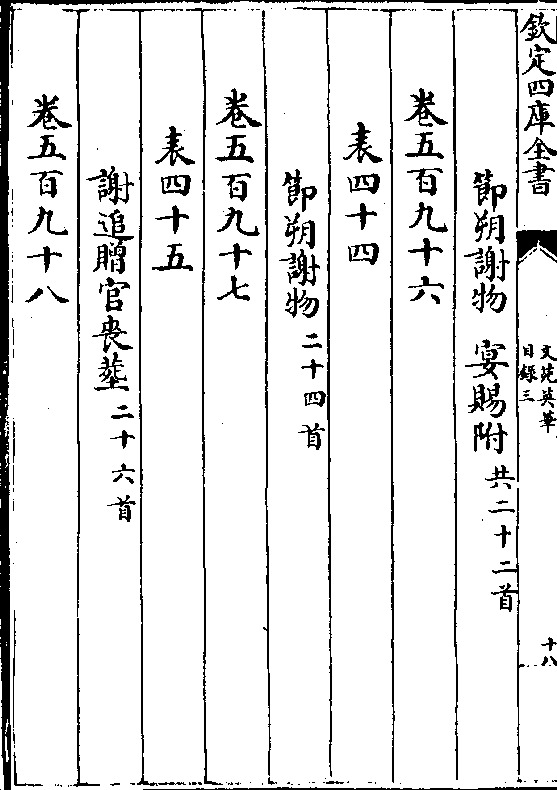 欽定四庫全書
文苑英華
目錄三
十八
節朔謝物 宴賜附 共二十二首
卷五百九十六
表四十四
節朔謝物 二十四首
卷五百九十七
表四十五
謝追贈官喪塟 二十六首
卷五百九十八